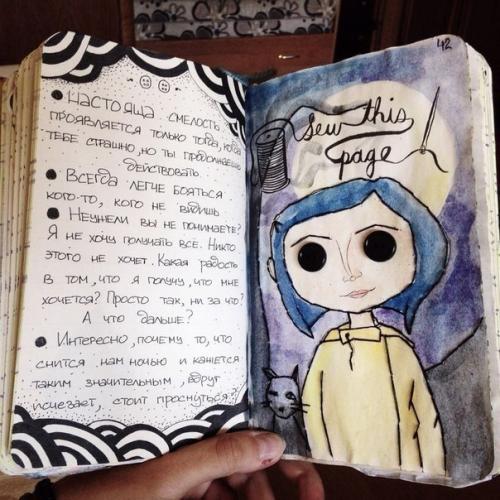 • Настояща смелость
проявляется только тогда, когда
тебе страшно, но ты продолжаешь
действовать.
• Всегда легче бояться
кого-то, кого не видишь.
• Неужели вы не понимаете?
Я не хочу получать все. Никто
этого не хочет. Какая радость
в том, что я получу, что мне
хочется? Просто так, ни за что?
А что дальше?
• Интересно, почему то, что
снится нам ночью и кажется
таким значительным, вдруг
исчезает, стоит проснуться?
42
Sew this
page